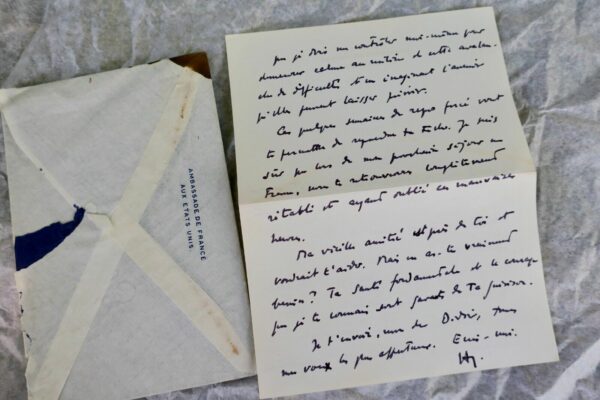 AMBASSADE DE FRANCE
AUX ETATS UNIS.
que je dois me contrôler moi-même pour
demeurer calme au milieu de cette avalan-
che de difficultés et en imaginant l'avenir
qu'elles peuvent laisser prévoir.
Ces quelques semaines de repos forcé vont
te permettre de reprendre ta tâche. Je suis
sûr que lors de mon prochain séjour en
France, nous te retrouverons complètement
rétabli et ayant oublié ces mauvaises
heures.
Ma vieille amitié de toi et
voudrait t'aider. Mais en as-tu vraiment
besoin? Ta santé fondamentale et le courage
que je te connais sont garants de ta guérison.
Je t'envoie, avec de tous
mes voeux les plus affectueux. Ecris-moi.